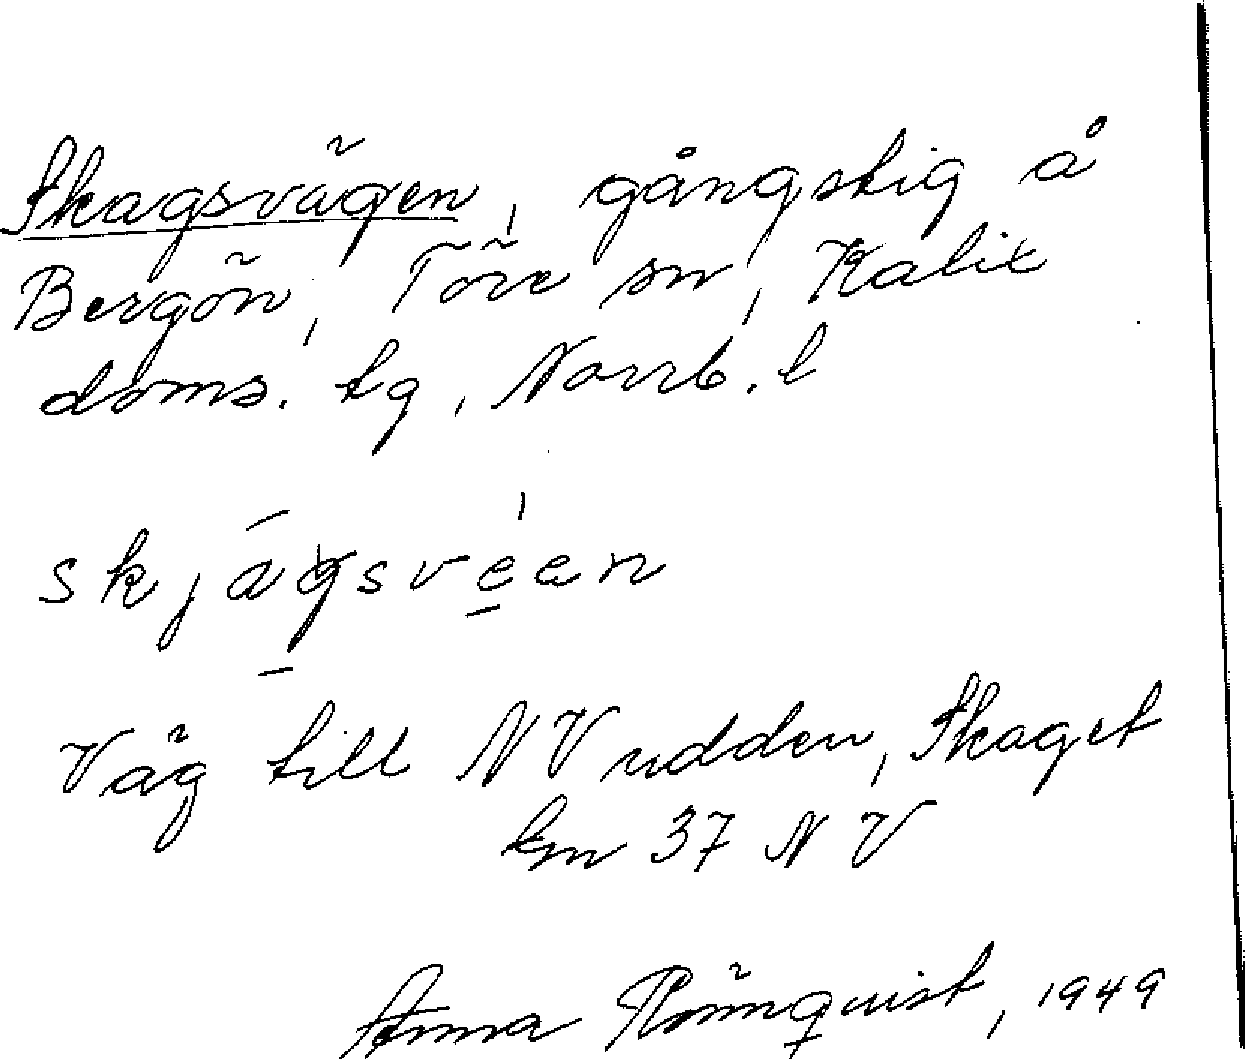 Skagsvägen, gångstig å
Bergön, Töre sn, Kalix
doms. tg, Norrb. l
skjágsvéen
Väg till NV udden, Skaget
km 37 NV
Anna Rönnquist, 1949